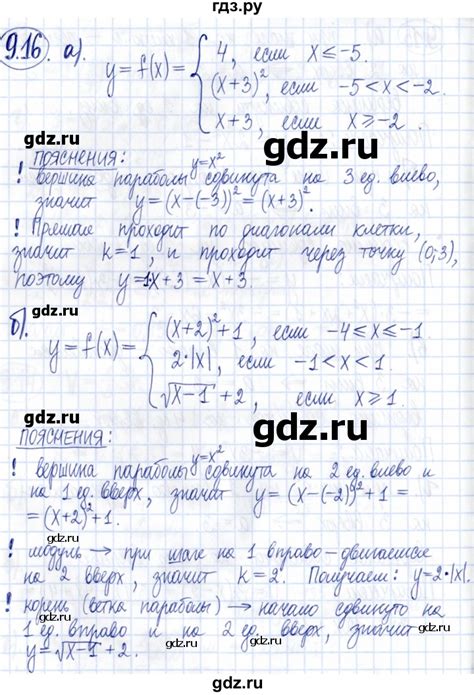 гдз.ру
9.16. а). y = f(x) = { 4, если x ≤ -5.
(x+3)², если -5 < x < -2.
x+3, если x ≥ -2.
gdz.ru
gdz.ru
ПОЯСНЕНИЯ: y=x²
! вершина параболы сдвинута на 3 ед. влево,
значит y = (x-(-3))² = (x+3)².
! Прямая проходит по диагонали клетки,
значит k=1, и проходит через точку (0;3),
поэтому y = 1·x+3 = x+3.
gdz.ru
gdz.ru
б). y = f(x) = { (x+2)²+1, если -4 ≤ x ≤ -1
2·|x|, если -1 < x < 1.
√x-1 + 2, если x ≥ 1.
gdz.ru
gdz.ru
ПОЯСНЕНИЯ: y=x²
! вершина параболы сдвинута на 2 ед. влево и
на 1 ед. вверх, значит y = (x-(-2))²+1 =
= (x+2)²+1.
gdz.ru
! модуль → при шаге на 1 вправо – двигаемся
на 2 вверх, значит k=2. Получаем: y=2·|x|.
! корень (ветка параболы) → начало сдвинуто на
1 ед. вправо и на 2 ед. вверх, значит
y = √x-1 + 2.
gdz.ru
gdz.ru
gdz.ru